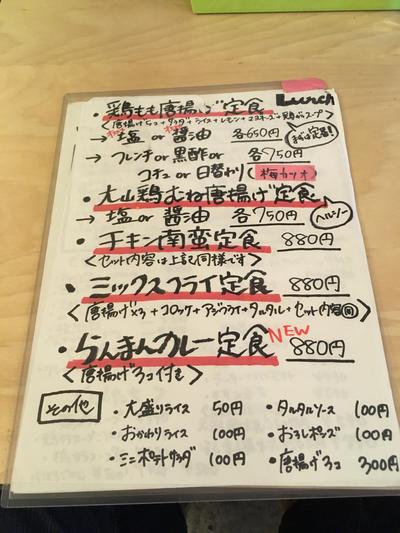 Lunch
・鶏もも唐揚げ定食
<唐揚げ5コ+サラダ+ライス+レモン+マヨネーズ+鶏がらスープ>
→ 塩 or 醤油 各650円 まずは定番!
→ フレンチ or 黒酢 or 各750円
コチュ or 日替わり(梅カツオ)
・大山鶏むね唐揚げ定食
→ 塩 or 醤油 各750円 ヘルシー
・チキン南蛮定食 880円
<セット内容は上記同様です>
・ミックスフライ定食 880円
<唐揚げ×3+コロッケ+アジフライ+タルタル+セット内容同>
・らんまんカレー定食 NEW 880円
<唐揚げ3コ付き>
その他
・大盛りライス 50円 ・タルタルソース 100円
・おかわりライス 100円 ・おろしポンズ 100円
・ミニポテトサラダ 100円 ・唐揚げ3コ 300円